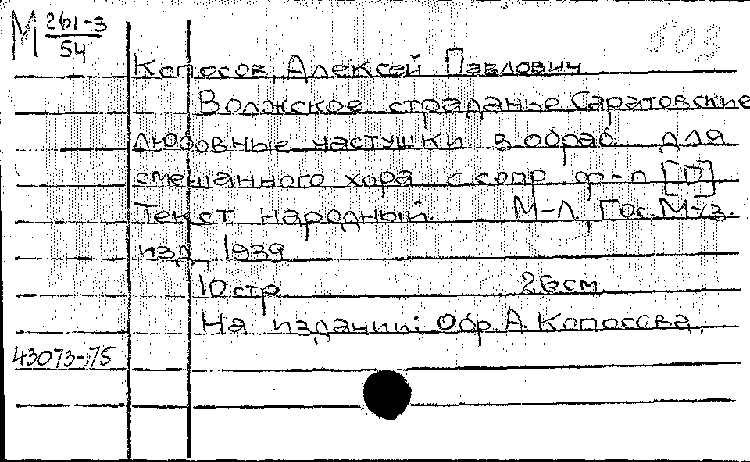 М 261-3
54
503
Копосов, Алексей Павлович
Волжское страданье. Саратовские
любовные частушки в обраб. для
смешанного хора с сопр. ф-п [П]
Текст народный. М-Л, Гос. Муз.
изд, 1939
10 стр 26см
На издании: Обр. А. Копосова.
43073-175